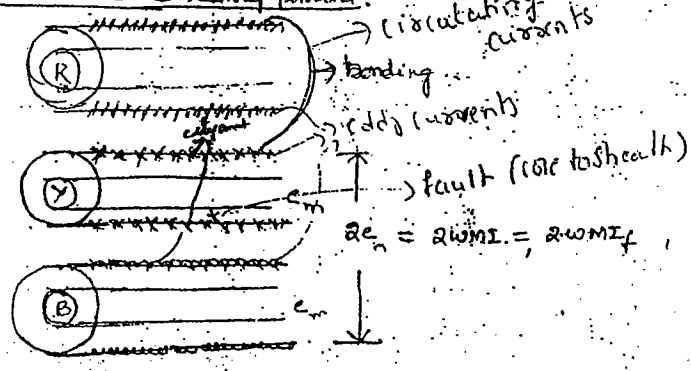 circulating
currents
R
bonding
eddy currents
Y
fault (core to sheath)
e_m
2e_m = 2ωMI = 2ωMI_f ,
B
e_m